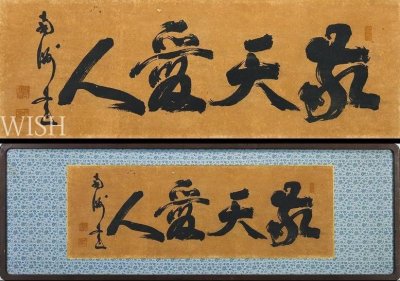 敬天愛人
南洲書
WISH
敬天愛人
南洲書